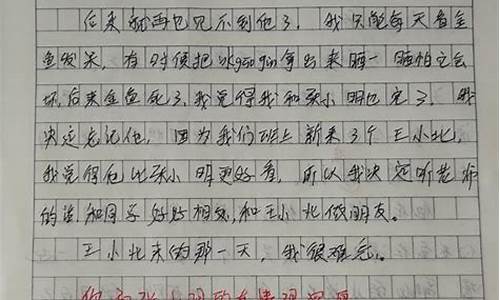 后来就再也见不到他了。我只能每天看金
鱼发呆，有时候把冰gaogun拿出来晒一晒怕它会
坏，后来金鱼死了，我觉得我和张小明也完了。我
决定忘记他，因为我们班上新来了个王小北，
我觉得他比张小明更好看，所以我决定听老师
的话和同学好好相处，和王小北做朋友。
王小北来的那一天，我很难忘。